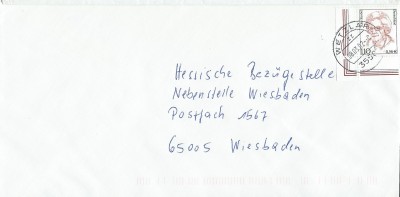 WETZLAR
Hessische Bezügestelle
Nebenstelle Wiesbaden
Postfach 1567
65005 Wiesbaden